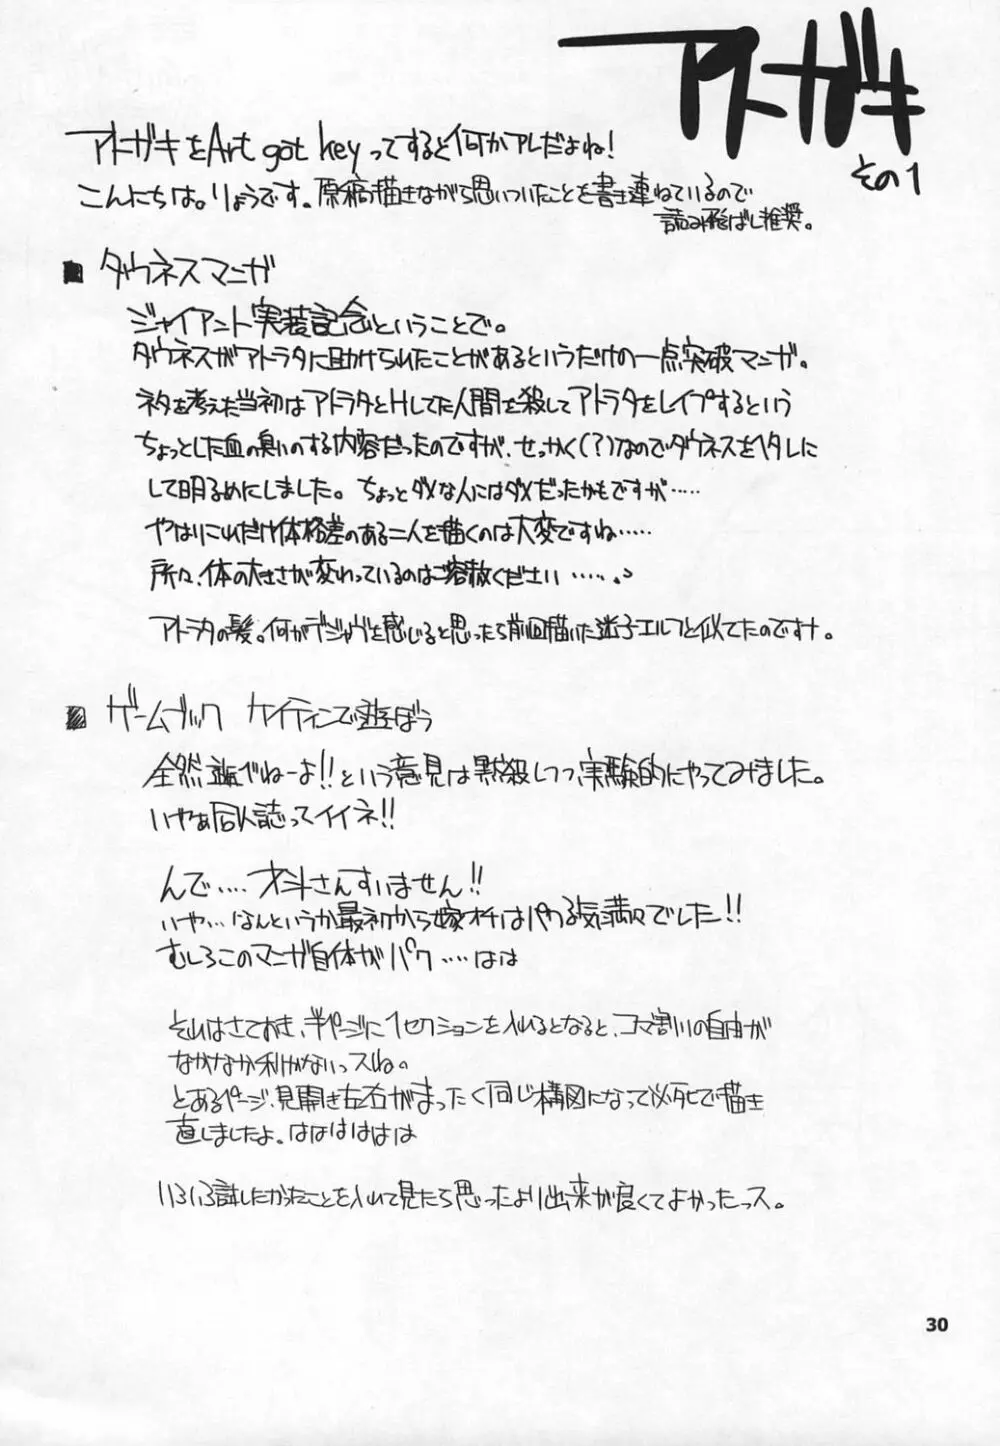 アトガキ
その1
アトガキをArt got keyってすると何かアレだよね!
こんにちは。りょうです。原稿描きながら思いついたことを書き連ねているので
読み飛ばし推奨。
■ ダウネスマンガ
ジャイアント実装記念ということで。
ダウネスがアトラタに助けられたことがあるというだけの一点突破マンガ。
ネタを考えた当初はアトラタとHしてた人間を殺してアトラタをレイプするという
ちょっとした血の臭いのする内容だったのですが、せっかく(?)なのでダウネスをヘタレに
して明るめにしました。ちょっとダメな人にはダメだったかもですが……
やはりこれだけ体格差のある二人を描くのは大変ですね……
所々、体の大きさが変わっているのはご容赦ください……。
アトラタの髪。何かデジャヴを感じると思ったら前回描いた迷子エルフと似てたのですナ。
■ ゲームブック ケイティンで遊ぼう
全然遊んでねーよ!!という意見は黙殺しつつ、実験的にやってみました。
いやぁ同人誌ってイイネ!!
んで…‥才斗さんすいません!!
いや…なんというか最初から嫁オチはパクる気満々でした!!
むしろこのマンガ自体がパク…‥はは
それはさておき、半ページに1セクションを入れるとなると、コマ割りの自由が
なかなか利かないっスね。
とあるページ、見開き左右がまったく同じ構図になって必死で描き
直しましたよ。はははははは
いろいろ試したかったことを入れて見たら思ったより出来が良くてよかったっス。
30